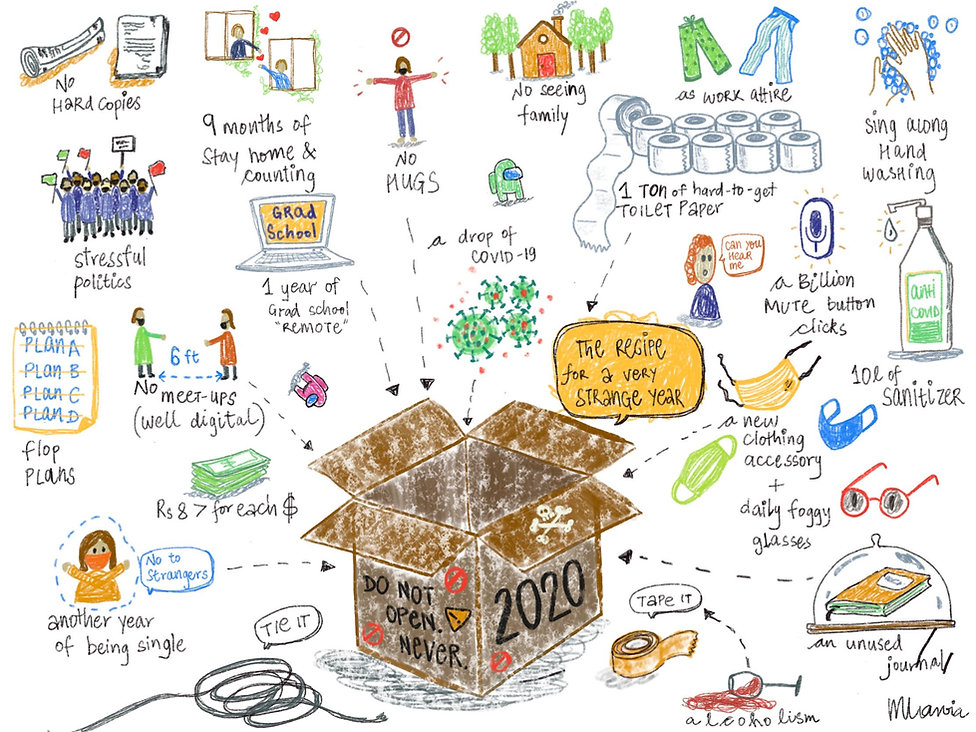 No
HARD COPIES
9 months of
stay home &
counting
NO
HUGS
No seeing
family
as WORK ATTIRE
sing along
HAND
WASHING
stressful
politics
GRAD
SCHOOL
1 year of
Grad school
"REMOTE"
a drop of
COVID-19
1 TON of hard-to-get
TOILET PAPER
CAN YOU
HEAR
ME
a BILLION
MUTE button
clicks
anti
COVID
10l of
SANITIZER
PLAN A
PLAN B
PLAN C
PLAN D
flop
PLANS
6 ft
No
MEET-UPS
(well digital)
THE RECIPE
for a very
STRANGE YEAR
a new
clothing
accessory
+
daily foggy
glasses
Rs 8 > for each $
No to
Strangers
another year
of being single
TIE IT
DO NOT
OPEN.
NEVER.
2020
TAPE IT
an unused
journal
alcoholism